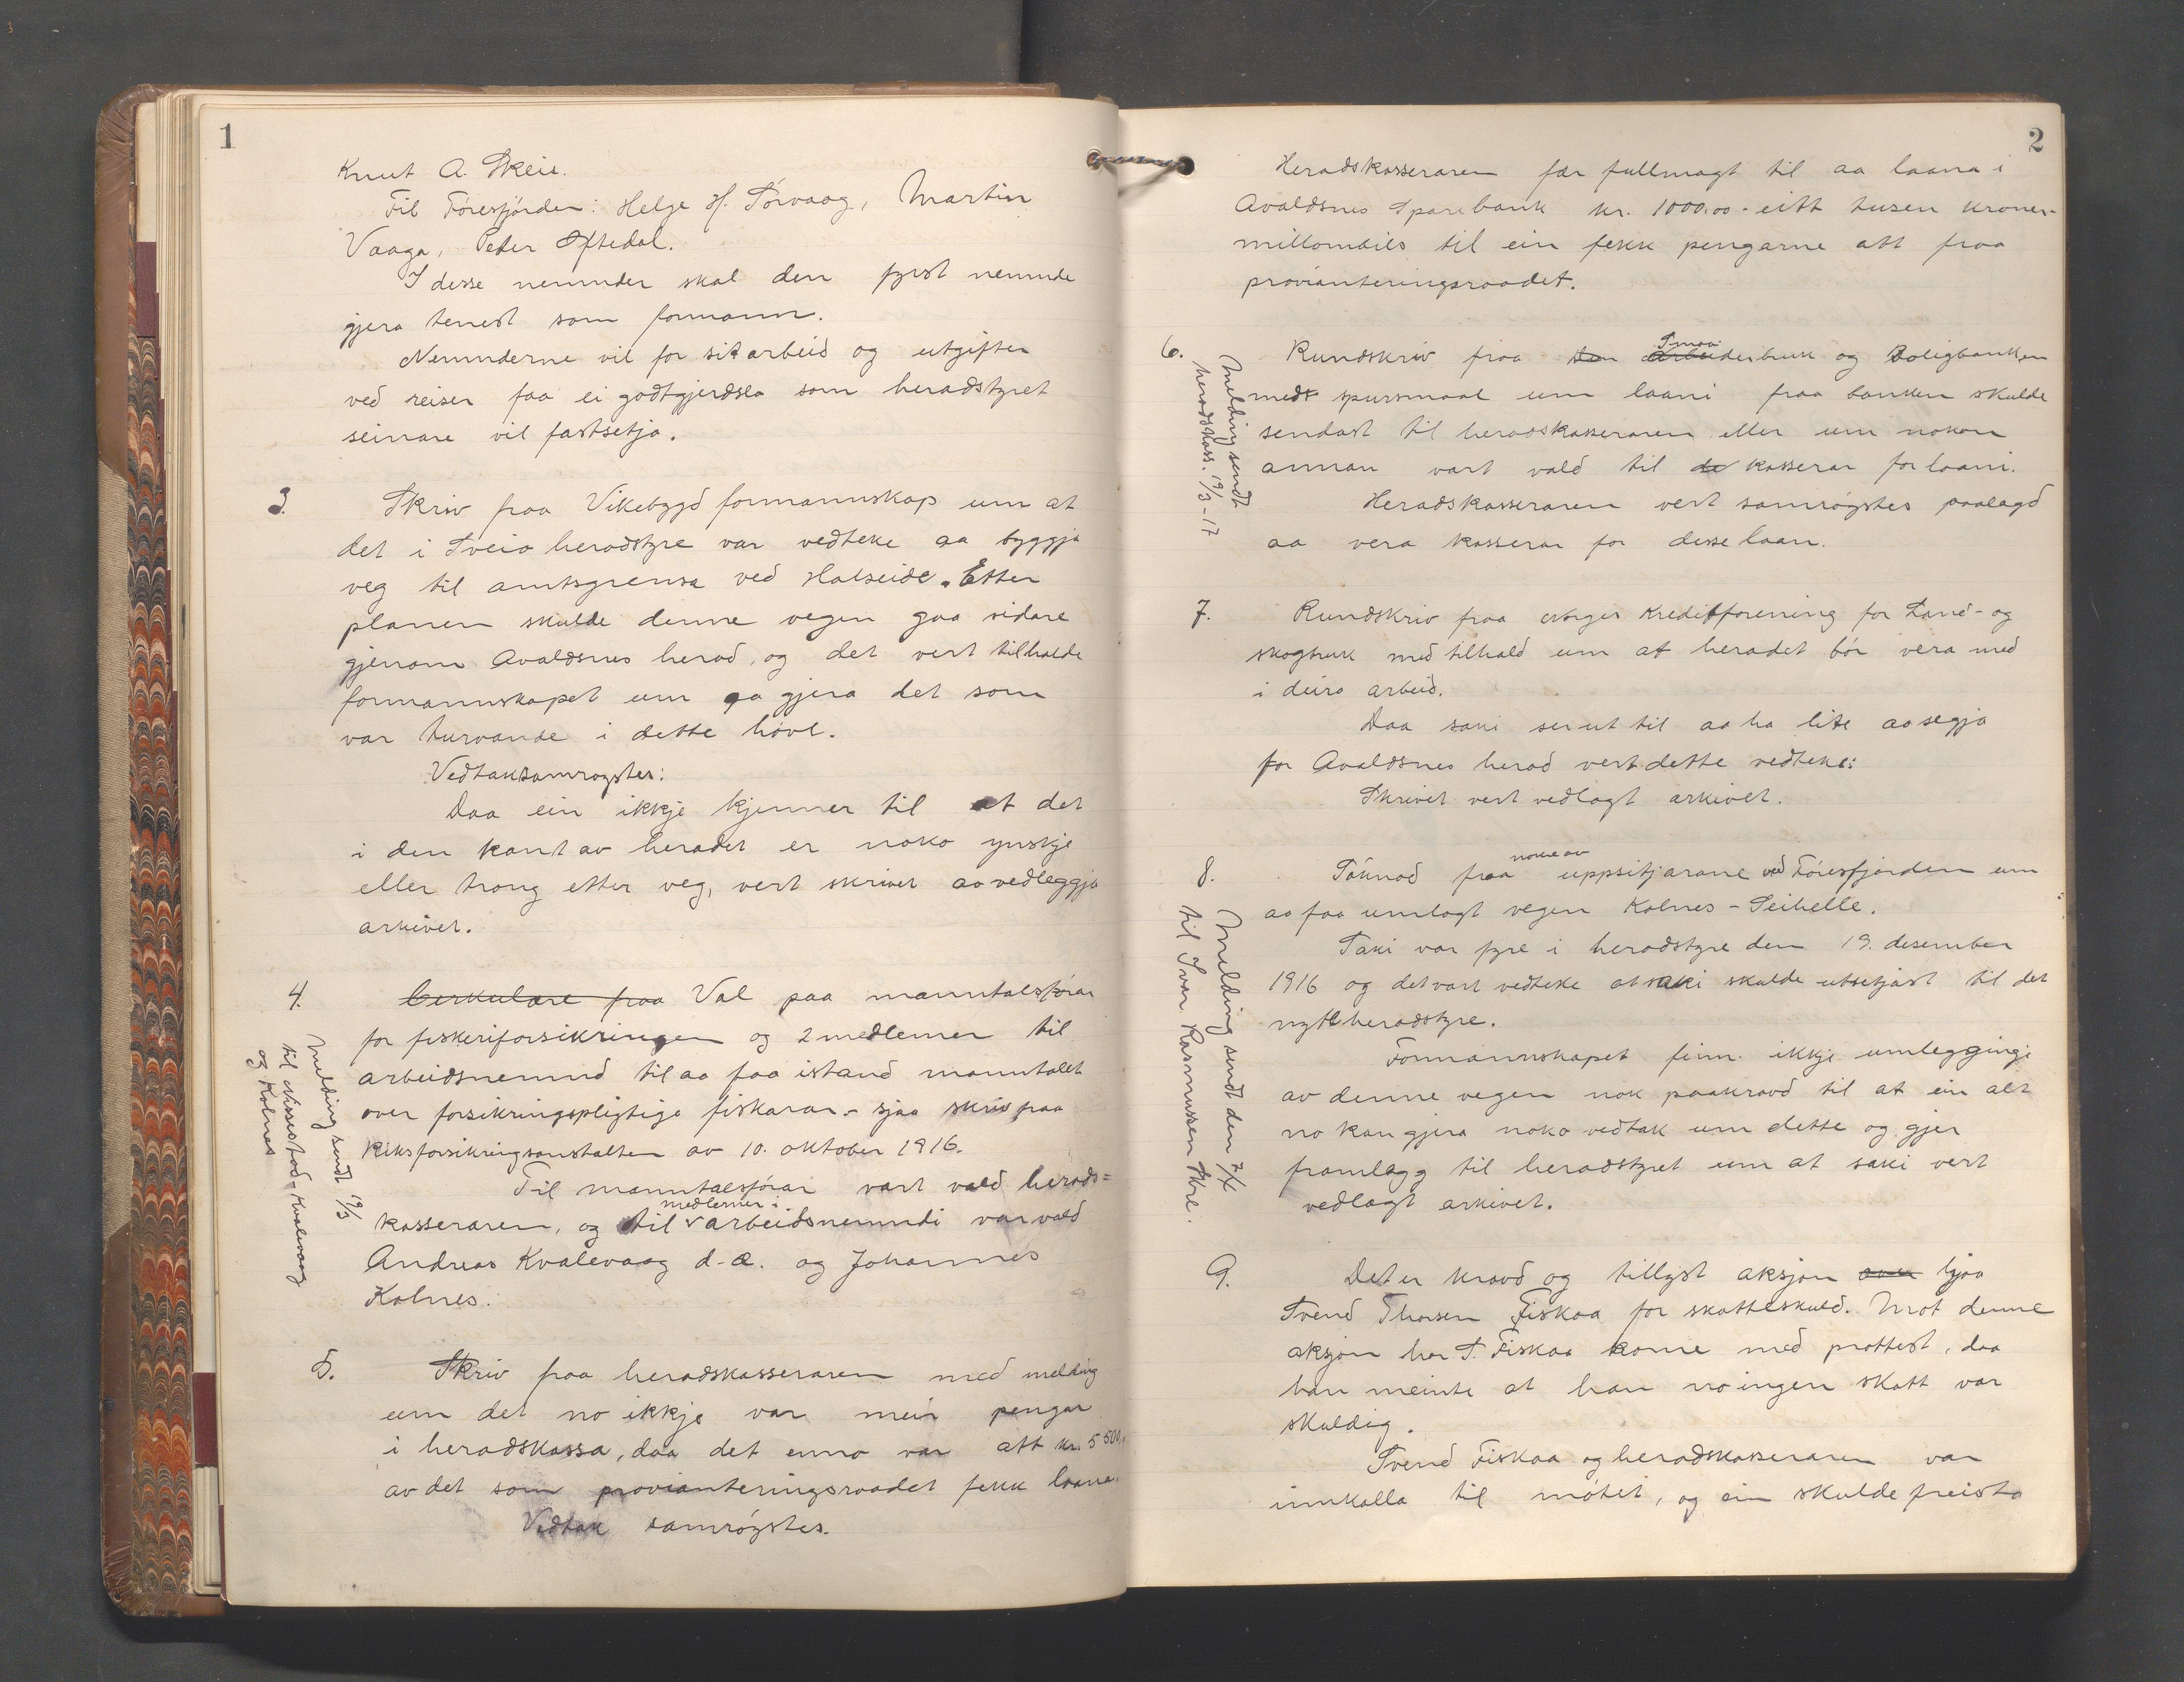 1
Knut A. Skeie.
Til Føresfjorden: Helge H. Førvaag, Martin
Vaaga, Peder Oftedal.
I desse nemnder skal den fyrst nemnde
gjera tenest som formann.
Nemnderne vil for sit arbeid og utgifter
ved reiser faa ei godtgjerdsla som heradstyret
seinare vil fastsetja.
3. Skriv fraa Vikebygd formannskap um at
det i Sveio heradstyre var vedteke aa byggja
veg til amtsgrensa ved Halseide. Etter
planen skulde denne vegen gaa vidare
gjenom Avaldsnes herad, og det vert tilhalde
formannskapet um aa gjera det som
var turvande i dette høve.
Vedtak samrøystes:
Daa ein ikkje kjenner til at det
i den kant av heradet er noko ynskje
eller trong etter veg, vert skrivet aa vedleggja
arkivet.
4. Cirkulære fraa Val paa manntalsførar
for fiskeriforsikringen og 2 medlemer til
arbeidsnemnd til aa faa istand manntalet
over forsikringspligtige fiskarar - sjaa skriv fraa
Riksforsikringsanstalten av 10. oktober 1916.
Til manntalsførar vart vald herads=
medlemer i
kasseraren, og til arbeidsnemndi var vald
Andreas Kvalevaag d. æ. og Johannes
Kolnes.
Melding sendt 19/3
til Nissestad, Kvalevaag
og Kolnes
5. Skriv fraa heradskasseraren med melding
um det no ikkje var meir pengar
i heradskassa, daa det enno var att kr. 5500,
av det som provianteringsraadet fekk laane.
Vedtak samrøystes.
2
Heradskasseraren fær fullmagt til aa laana i
Avaldsnes Sparebank kr. 1000.00 - eitt tusen kroner -
millombils til ein fekk pengarne att fraa
provianteringsraadet.
Smaa
6. Rundskriv fraa Den Arbeiderbruk og Boligbanken
med spursmaal um laani fraa banken skulde
sendast til heradskasseraren eller um nokon
annan vart vald til de kasserar for laani.
Heradskasseraren vert samrøystes paalagd
aa vera kasserar for desse laan.
Melding sendt
heradskass. 19/3-17
7. Rundskriv fraa Norges Kreditforening for Land- og
skogbruk med tilhald um at heradet bør vera med
i deira arbeid.
Daa saki ser ut til aa ha lite aa segja
for Avaldsnes herad vert dette vedteke:
Skrivet vert vedlagt arkivet.
nokre av
8. Søknad fraa uppsitjarane ved Føresfjorden um
aa faa umlagt vegen Kolnes - Leihelle.
Saki var fyre i heradstyre den 19. desember
1916 og det vart vedteke at saki skulde utsetjast til det
nytt heradstyre.
Formannskapet finn ikkje umleggingi
av denne vegen nok paakravd til at ein alt
no kan gjera noko vedtak um dette og gjer
framlegg til heradstyret um at saki vert
vedlagt arkivet.
Melding sendt den 7/4
til Svein Rasmussen Øvre.
9. Det er kravd og tillyst aksjon over hjaa
Svend Thorsen Fiskaa for skatteskuld. Mot denne
aksjon har S. Fiskaa kome med prottest, daa
han meinte at han no ingen skatt var
skuldig.
Svend Fiskaa og heradskasseraren var
innkalla til møtet, og ein skulde freista